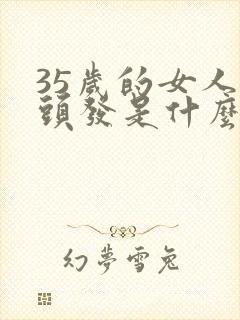 35歲的女人
頭發是什麼
幻夢雪兔